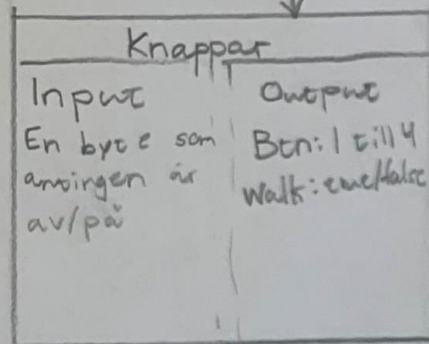 Knappar
Input
En byte som
antingen är
av/på
Output
Btn: 1 till 4
Walk: true/false